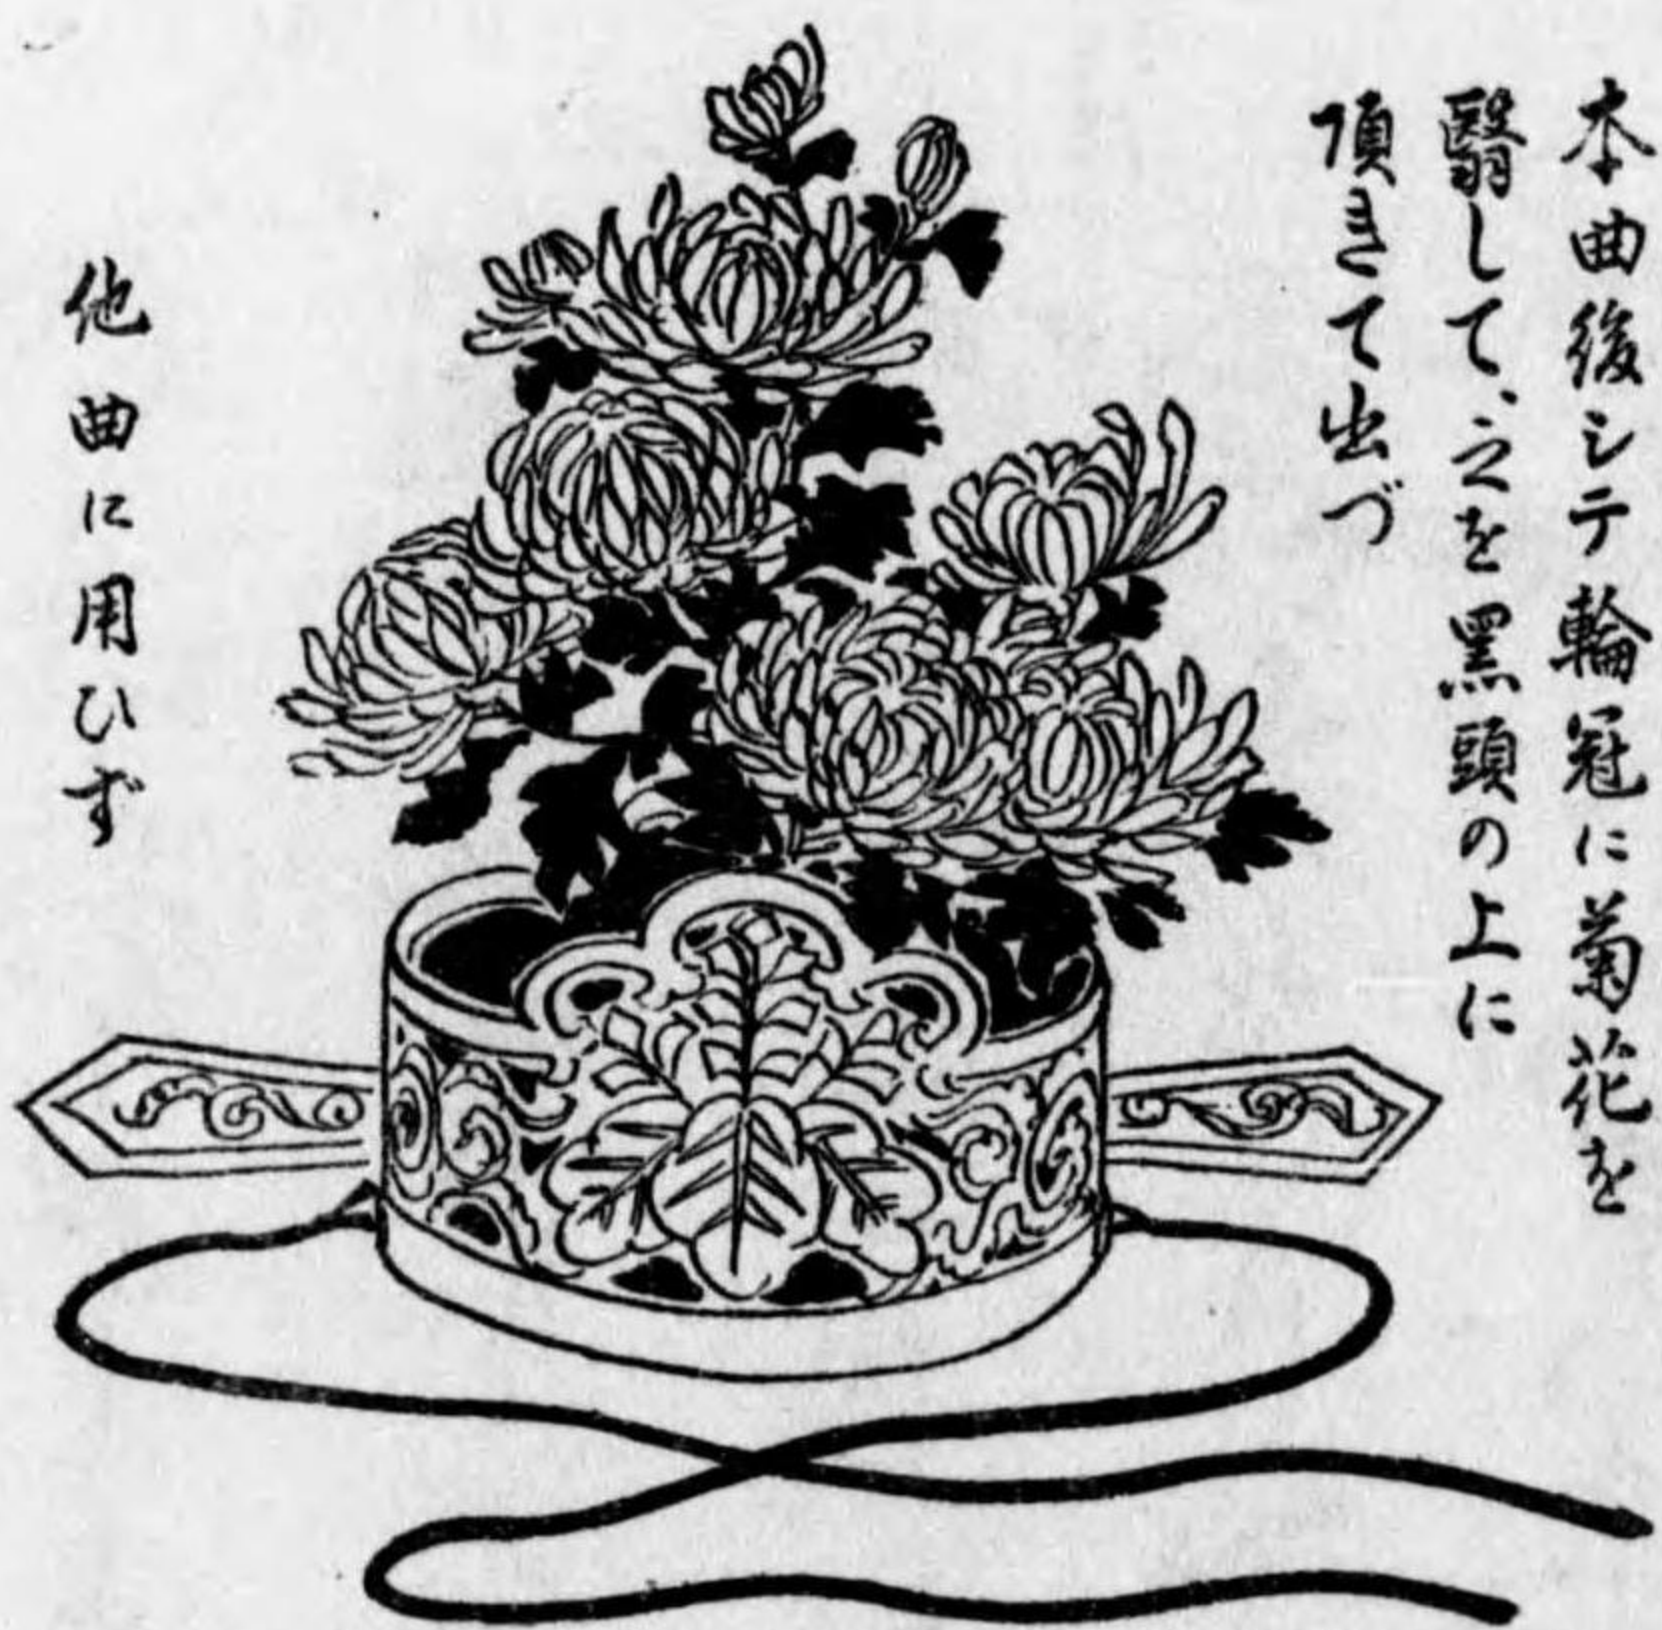 本曲後シテ輪冠に菊花を
翳して、之を黑頭の上に
頂きて出づ
他曲に用ひず